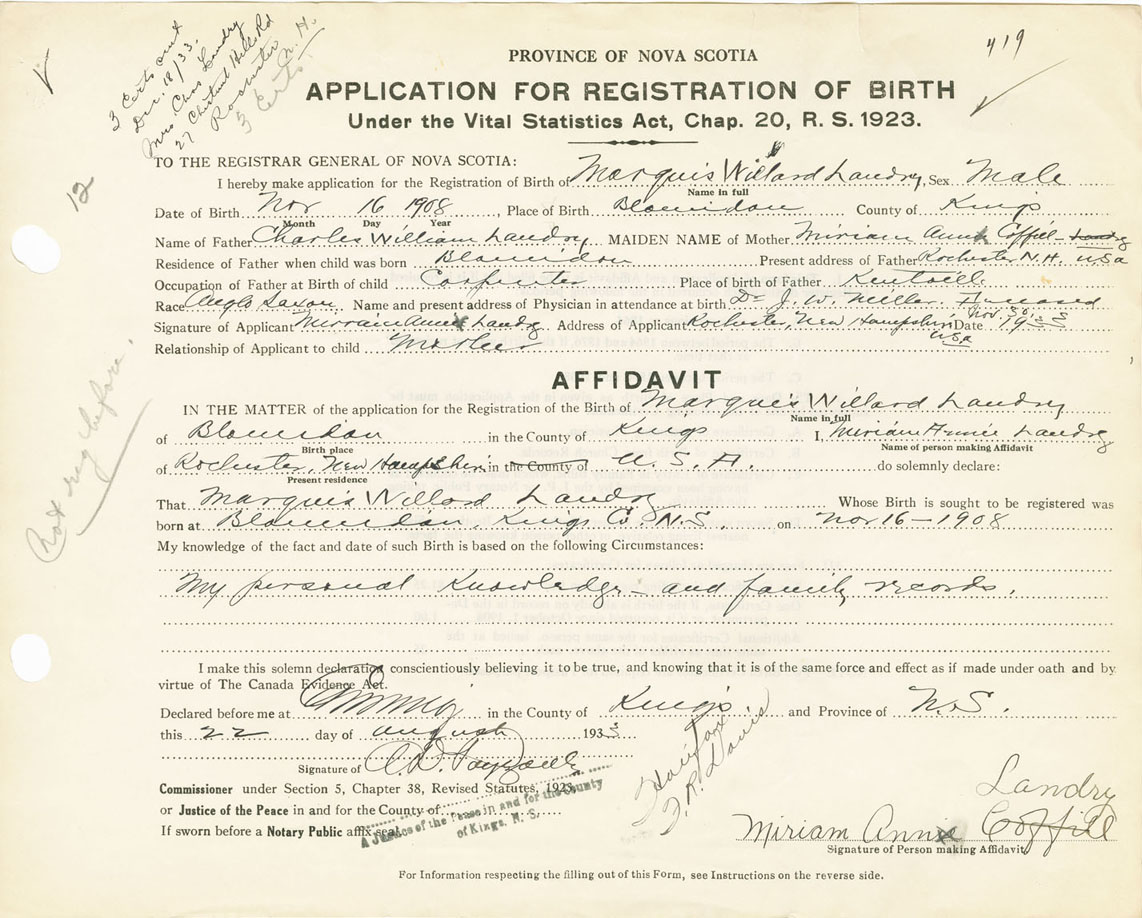 3 Certs sent
Dec. 18/33.
Mrs. Chas Landry
27 Chestnut Hills Rd
Rochester N. H.
3 Certs
419
PROVINCE OF NOVA SCOTIA
APPLICATION FOR REGISTRATION OF BIRTH
Under the Vital Statistics Act, Chap. 20, R. S. 1923.
TO THE REGISTRAR GENERAL OF NOVA SCOTIA:
I hereby make application for the Registration of Birth of Marquis Willard Landry, Sex Male
Name in full
12
Date of Birth Nov 16 1908, Place of Birth Blomidon County of Kings
Month Day Year
Name of Father Charles William Landry MAIDEN NAME of Mother Miriam Annie Coffill - Landry
Residence of Father when child was born Blomidon Present address of Father Rochester N.H. USA
Occupation of Father at Birth of child Carpenter Place of birth of Father Kentville
Race Anglo Saxon Name and present address of Physician in attendance at birth Dr J. W. Miller. Deceased
Signature of Applicant Mirriam Annie Landry Address of Applicant Rochester, New Hampshire USA Date Nov. 30, 1933
Relationship of Applicant to child Mother
Not reg before.
AFFIDAVIT
IN THE MATTER of the application for the Registration of the Birth of Marquis Willard Landry
Name in full
of Blomidon in the County of Kings I, Miriam Annie Landry
Birth place Name of person making Affidavit
of Rochester, New Hampshire in the County of U. S. A. do solemnly declare:
Present residence
That Marquis Willard Landry Whose Birth is sought to be registered was
born at Blomidon Kings Co. N.S. on Nov 16 - 1908
My knowledge of the fact and date of such Birth is based on the following Circumstances:
My personal Knowledge - and family records.
I make this solemn declaration conscientiously believing it to be true, and knowing that it is of the same force and effect as if made under oath and by
virtue of The Canada Evidence Act.
Declared before me at in the County of Kings and Province of N.S.
this 22 day of august 1933
Signature of
Commissioner under Section 5, Chapter 38, Revised Statutes, 1923,
or Justice of the Peace in and for the County of
If sworn before a Notary Public affix seal.
A Justice of the Peace in and for the County
of Kings, N. S.
F. R. Davis
Landry
Miriam Annie Coffill
Signature of Person making Affidavit
For Information respecting the filling out of this Form, see Instructions on the reverse side.